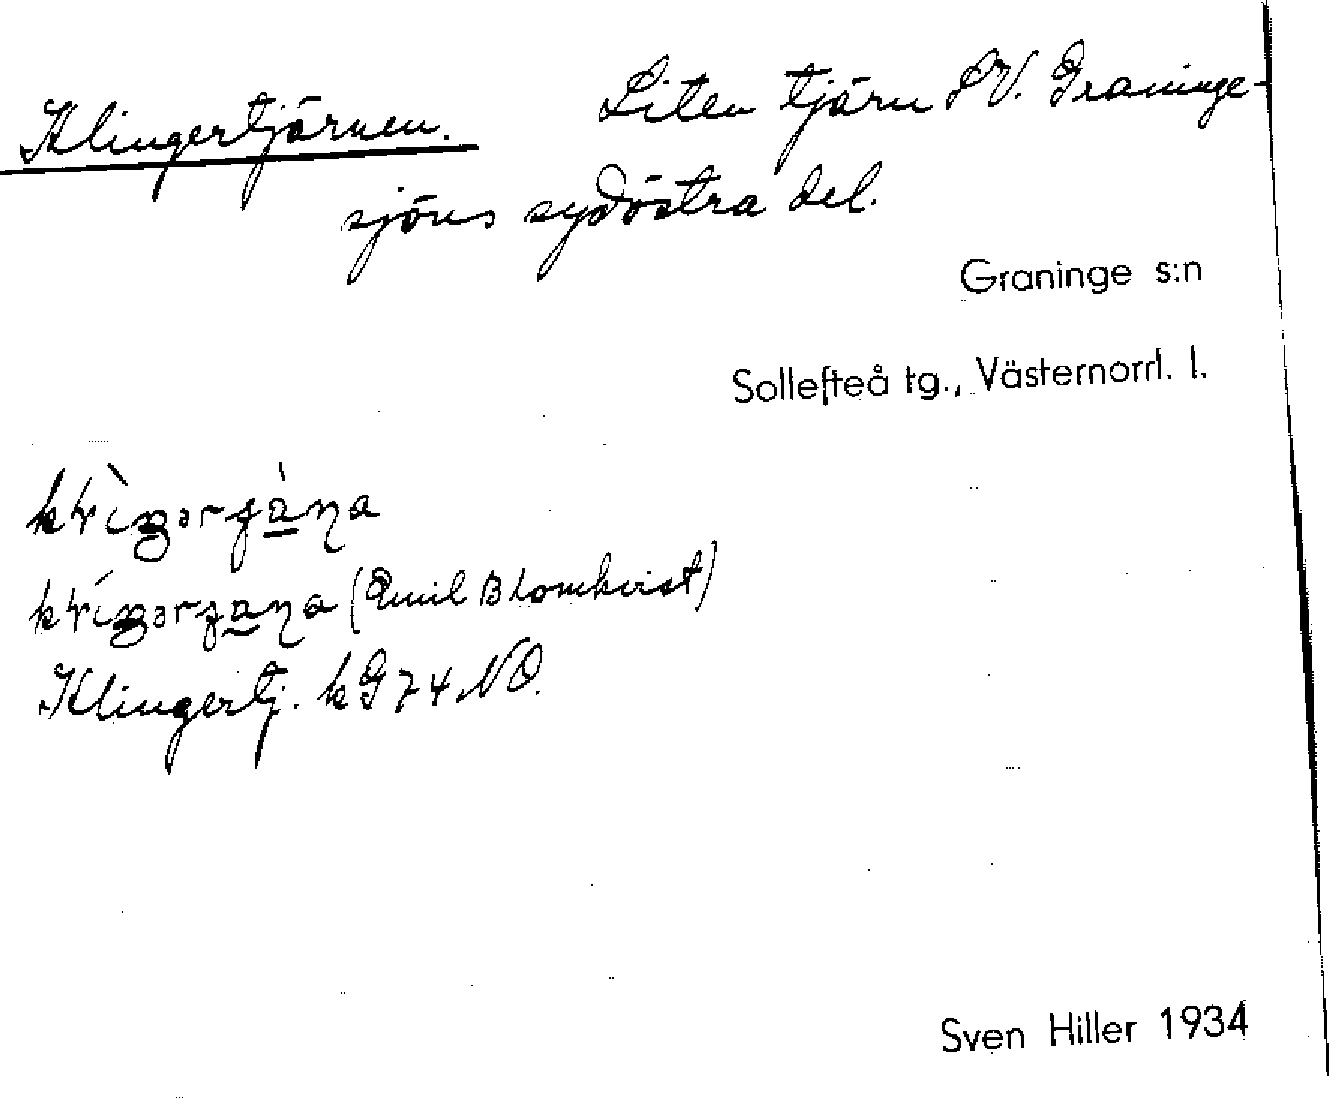 Klingertjärnen. Liten tjärn SV. Graninge-
sjöns sydöstra del.
Graninge s:n
Sollefteå tg., Västernorrl. l.
(Emil Blomkvist)
Klingertj. kG 74 NO.
Sven Hiller 1934